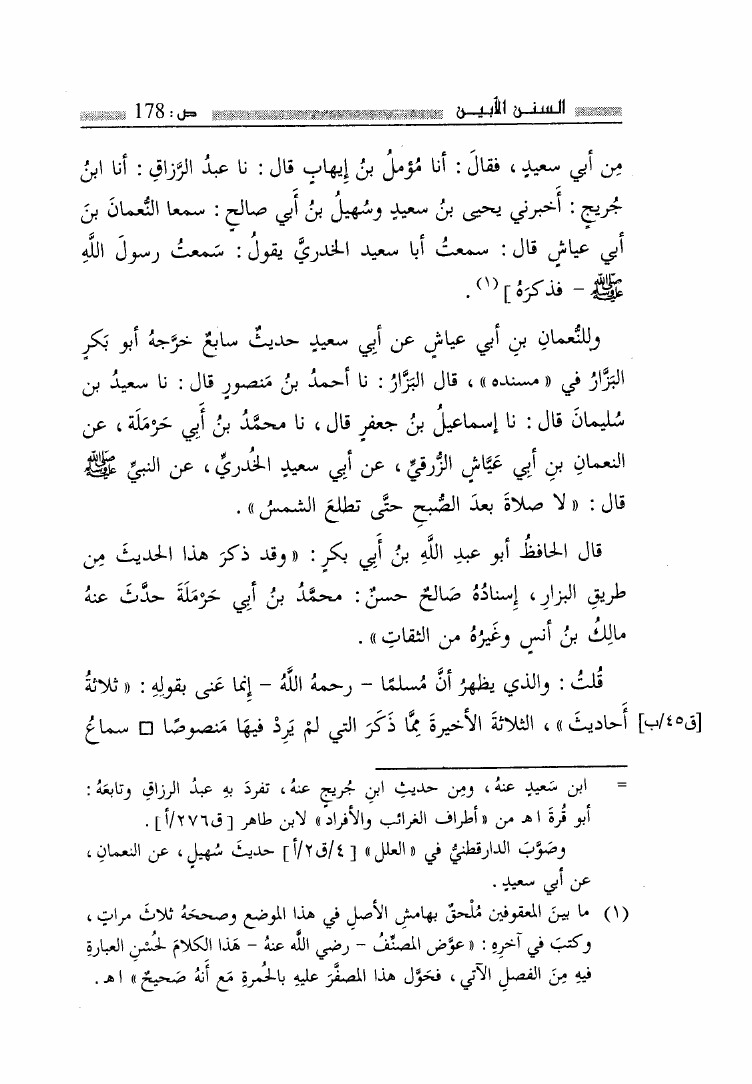 السنن الأبين ص: 178
مِن أبي سعيدٍ ، فقالَ : أنا مُؤملُ بنُ إيهابٍ قال : نا عبدُ الرَّزاقِ : أنا ابنُ
جُريجٍ : أَخبرني يحيى بنُ سعيدٍ وسُهيلُ بنُ أبي صالحٍ : سمعا النُّعمانَ بنَ
أبي عياشٍ قال : سمعتُ أبا سعيد الخدريَّ يقولُ : سَمعتُ رسولَ اللَّهِ
ﷺ – فذكرَهُ ] (١) .
وللنُّعمانِ بنِ أبي عياشٍ عن أبِي سعيدٍ حديثٌ سابعٌ خرَّجهُ أبو بَكرٍ
البَزَّارُ في « مسنده » ، قال البَزَّارُ : نا أحمدُ بنُ مَنصورٍ قال : نا سعيدُ بن
سُليمانَ قال : نا إسماعيلُ بنُ جعفرٍ قال ، نا محمَّدُ بنُ أَبِي حَرْمَلَة ، عن
النعمانِ بنِ أبي عَيَّاشٍ الزُّرقيِّ ، عن أبي سعيدٍ الخُدريِّ ، عن النبيِّ ﷺ
قال : « لا صلاةَ بعدَ الصُّبحِ حتَّى تطلعَ الشمسُ » .
قال الحافظُ أبو عبدِ اللَّهِ بنُ أَبي بكرٍ : « وقد ذكرَ هذا الحديثَ مِن
طريقِ البزارِ ، إسنادُهُ صَالحٌ حسنٌ : محمَّدُ بنُ أبي حَرْمَلَةَ حدَّثَ عنهُ
مالِكُ بنُ أنسٍ وغَيرُهُ من الثقاتِ » .
قُلتُ : والذي يظهرُ أنَّ مُسلمًا – رحمهُ اللَّهُ – إِنما عَنى بقولِهِ : « ثلاثةُ
أَحاديثَ » ، الثلاثةَ الأخيرةَ مِمَّا ذَكَرَ التي لمْ يَرِدْ فيهَا مَنصوصًا □ سماعُ [ق٤٥/ب]
= ابن سَعيدٍ عنهُ ، ومِن حديثِ ابنِ جُريجٍ عنهُ ، تفردَ بهِ عبدُ الرزاقِ وتابعَهُ :
أبو قُرةَ اهـ من « أطراف الغرائب والأفراد » لابن طاهر [ ق٢٧٦/أ ] .
وصَوَّبَ الدارقطنيُّ في « العلل » [ ٤/ق٢/أ ] حديثَ سُهيلٍ ، عن النعمانِ ،
عن أبي سعيدٍ .
(١) ما بينَ المعقوفين مُلْحقٌ بهامشِ الأصلِ في هذا الموضع وصححَهُ ثلاثَ مراتٍ ،
وكتبَ في آخرِهِ : « عوَّض المصنِّفُ – رضي اللَّه عنهُ – هَذا الكلامَ لحُسْنِ العبارةِ
فيهِ مِنَ الفصلِ الآتي ، فحَوَّل هذا المصفَّرَ عليهِ بالحُمرةِ مَع أنهُ صَحيحٌ » اهـ .